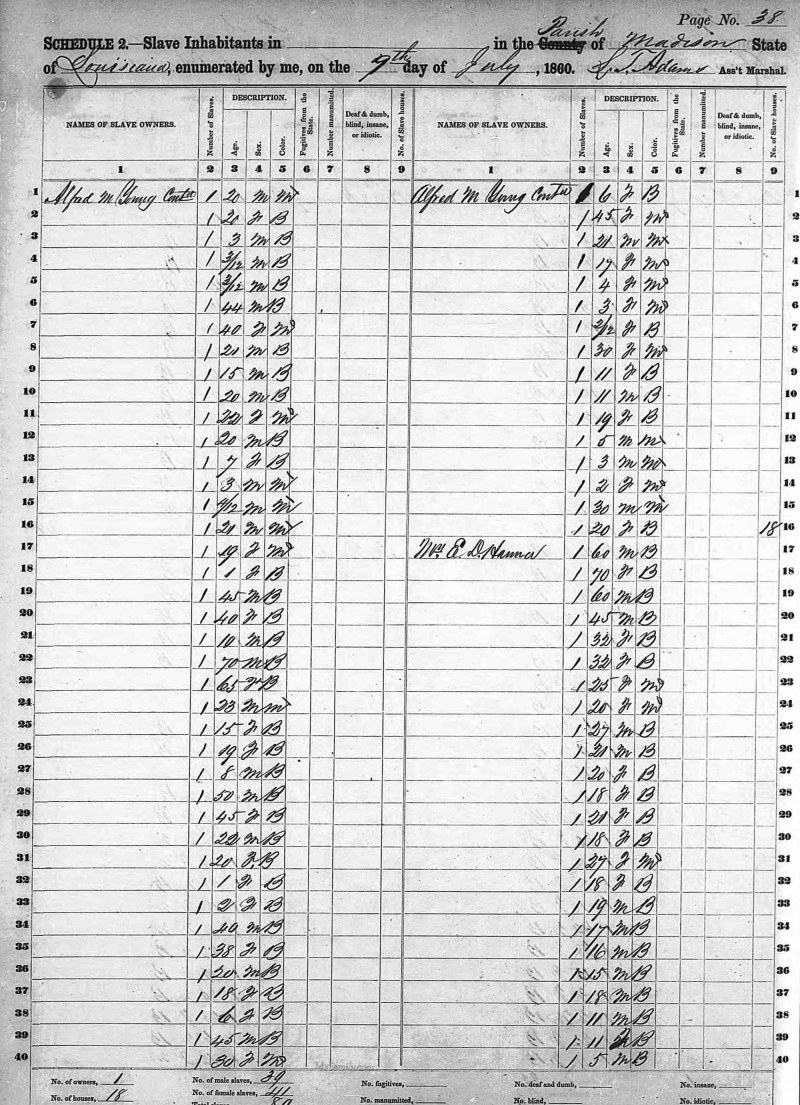 Page No. 38
SCHEDULE 2.—Slave Inhabitants in in the County Parish of Madison State
of Louisiana, enumerated by me, on the 9th day of July, 1860. Adams Ass't Marshal.
NAMES OF SLAVE OWNERS. Number of Slaves. DESCRIPTION. Age. Sex. Color. Fugitives from the State. Number manumitted. Deaf & dumb, blind, insane, or idiotic. No. of Slave houses. NAMES OF SLAVE OWNERS. Number of Slaves. DESCRIPTION. Age. Sex. Color. Fugitives from the State. Number manumitted. Deaf & dumb, blind, insane, or idiotic. No. of Slave houses.
1 2 3 4 5 6 7 8 9 1 2 3 4 5 6 7 8 9
1 Alfred M Young 1 20 M M Alfred M Young 1 6 F B 1
2 1 20 F B 1 45 F M 2
3 1 3 M B 1 21 M M 3
4 1 3/12 M B 1 17 F M 4
5 1 3/12 M B 1 4 F M 5
6 1 44 M B 1 3 F M 6
7 1 40 F M 1 2/12 F B 7
8 1 21 M B 1 30 F M 8
9 1 15 M B 1 11 F B 9
10 1 20 M B 1 11 M B 10
11 1 22 F M 1 19 F B 11
12 1 20 M B 1 5 M M 12
13 1 7 F B 1 3 M M 13
14 1 3 M M 1 2 F M 14
15 1 M M 1 30 M M 15
16 1 21 M M 1 20 F B 18 16
17 1 19 F M Mrs E. D. 1 60 M B 17
18 1 1 F B 1 70 F B 18
19 1 45 M B 1 60 M B 19
20 1 40 F B 1 45 M B 20
21 1 10 M B 1 32 F B 21
22 1 70 M B 1 32 F B 22
23 1 65 F B 1 25 F M 23
24 1 23 M M 1 20 F M 24
25 1 15 F B 1 27 M B 25
26 1 19 F B 1 21 M B 26
27 1 8 M B 1 20 F B 27
28 1 50 M B 1 18 F B 28
29 1 45 F B 1 21 F B 29
30 1 22 M B 1 18 F B 30
31 1 20 F B 1 27 F M 31
32 1 1 F B 1 18 F B 32
33 1 2 F B 1 19 M B 33
34 1 40 M B 1 17 M B 34
35 1 38 F B 1 16 M B 35
36 1 20 M B 1 15 M B 36
37 1 18 F B 1 18 M B 37
38 1 6 F B 1 11 M B 38
39 1 45 M B 1 11 B 39
40 1 30 F M 1 5 M B 40
No. of owners, 1 No. of male slaves, 39 No. fugitives, No. deaf and dumb, No. insane,
No. of houses, 18 No. of female slaves, 41 No. manumitted, No. blind, No. idiotic,
Total slaves 80